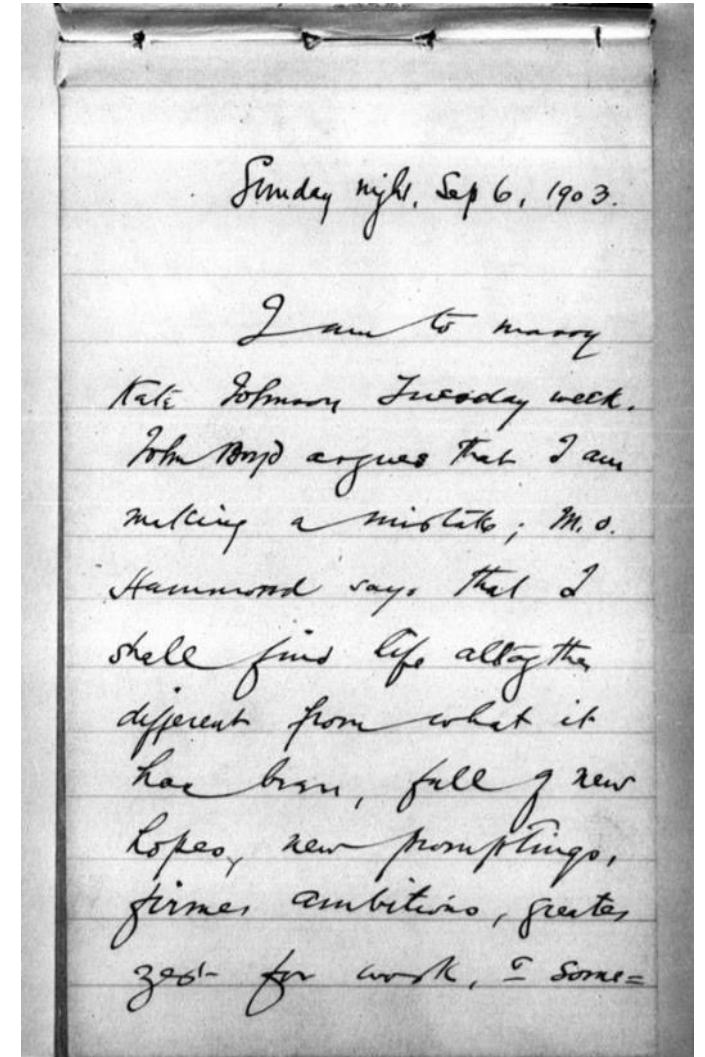 Sunday night, Sep 6, 1903.
I am to marry
Kate Johnson Tuesday week.
John Boyd argues that I am
making a mistake; M.O.
Hammond says that I
shall find life altogether
different from what it
has been, full of new
hopes, new promptings,
firmer ambitions, greater
zest for work, I some=